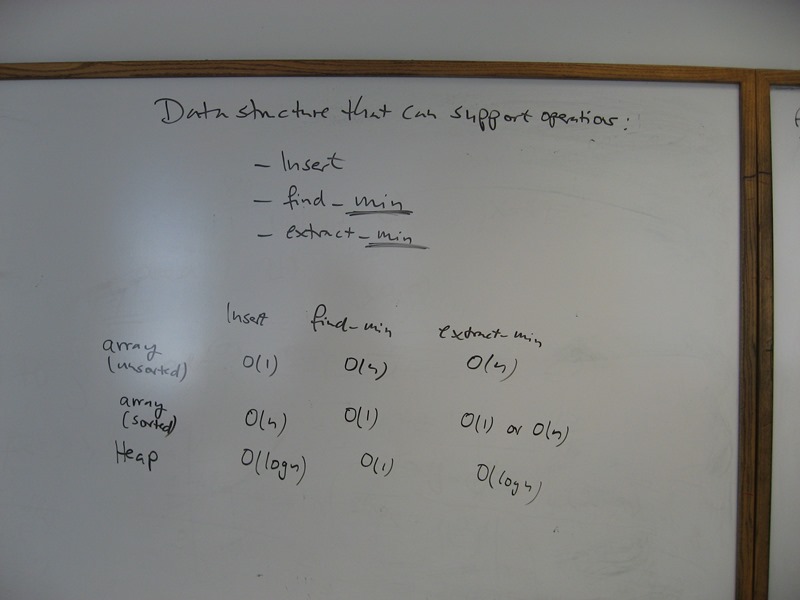 Data structure that can support operations:
- Insert
- find-min
- extract-min
Insert find-min extract-min
array (unsorted) O(1) O(n) O(n)
array (sorted) O(n) O(1) O(1) or O(n)
Heap O(logn) O(1) O(logn)